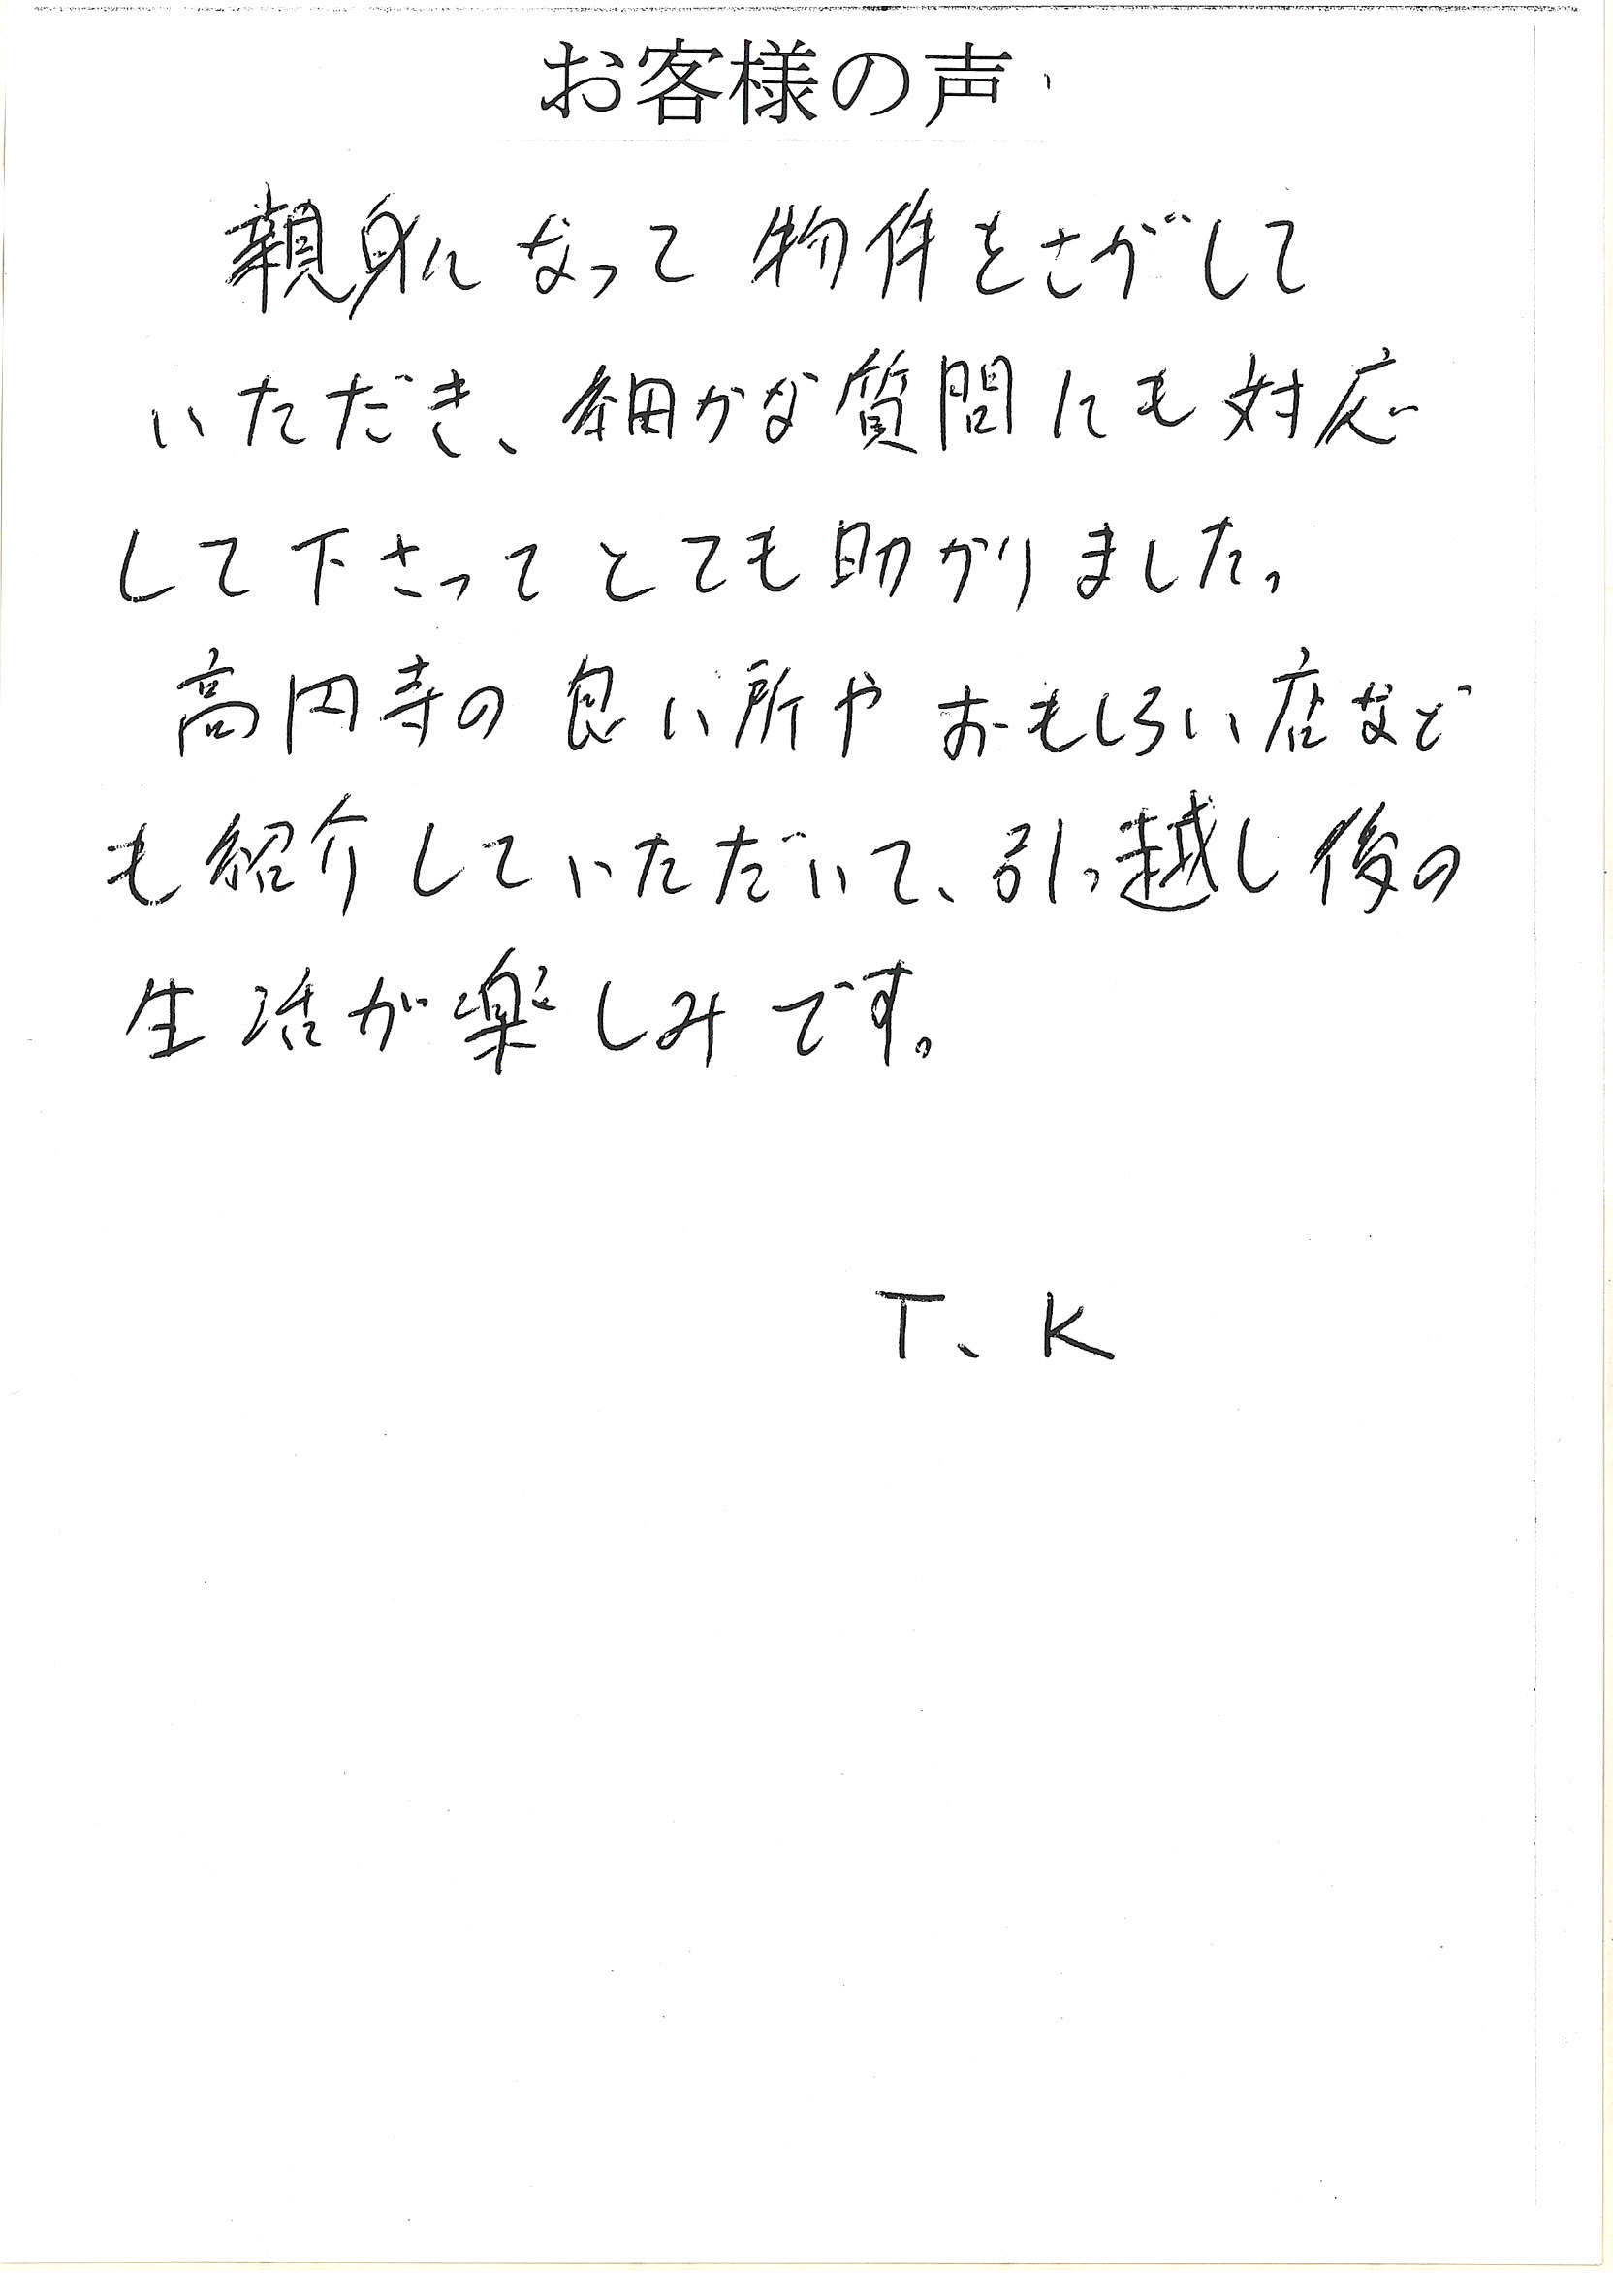 お客様の声
親身になって物件をさがして
いただき、細かな質問にも対応
して下さってとても助かりました。
高円寺の良い所やおもしろい店など
も紹介していただいて、引っ越し後の
生活が楽しみです。
T、K